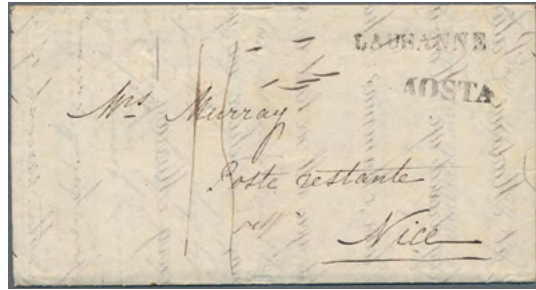 LAUSANNE
AOSTA
Mrs Murray
Poste restante
Nice